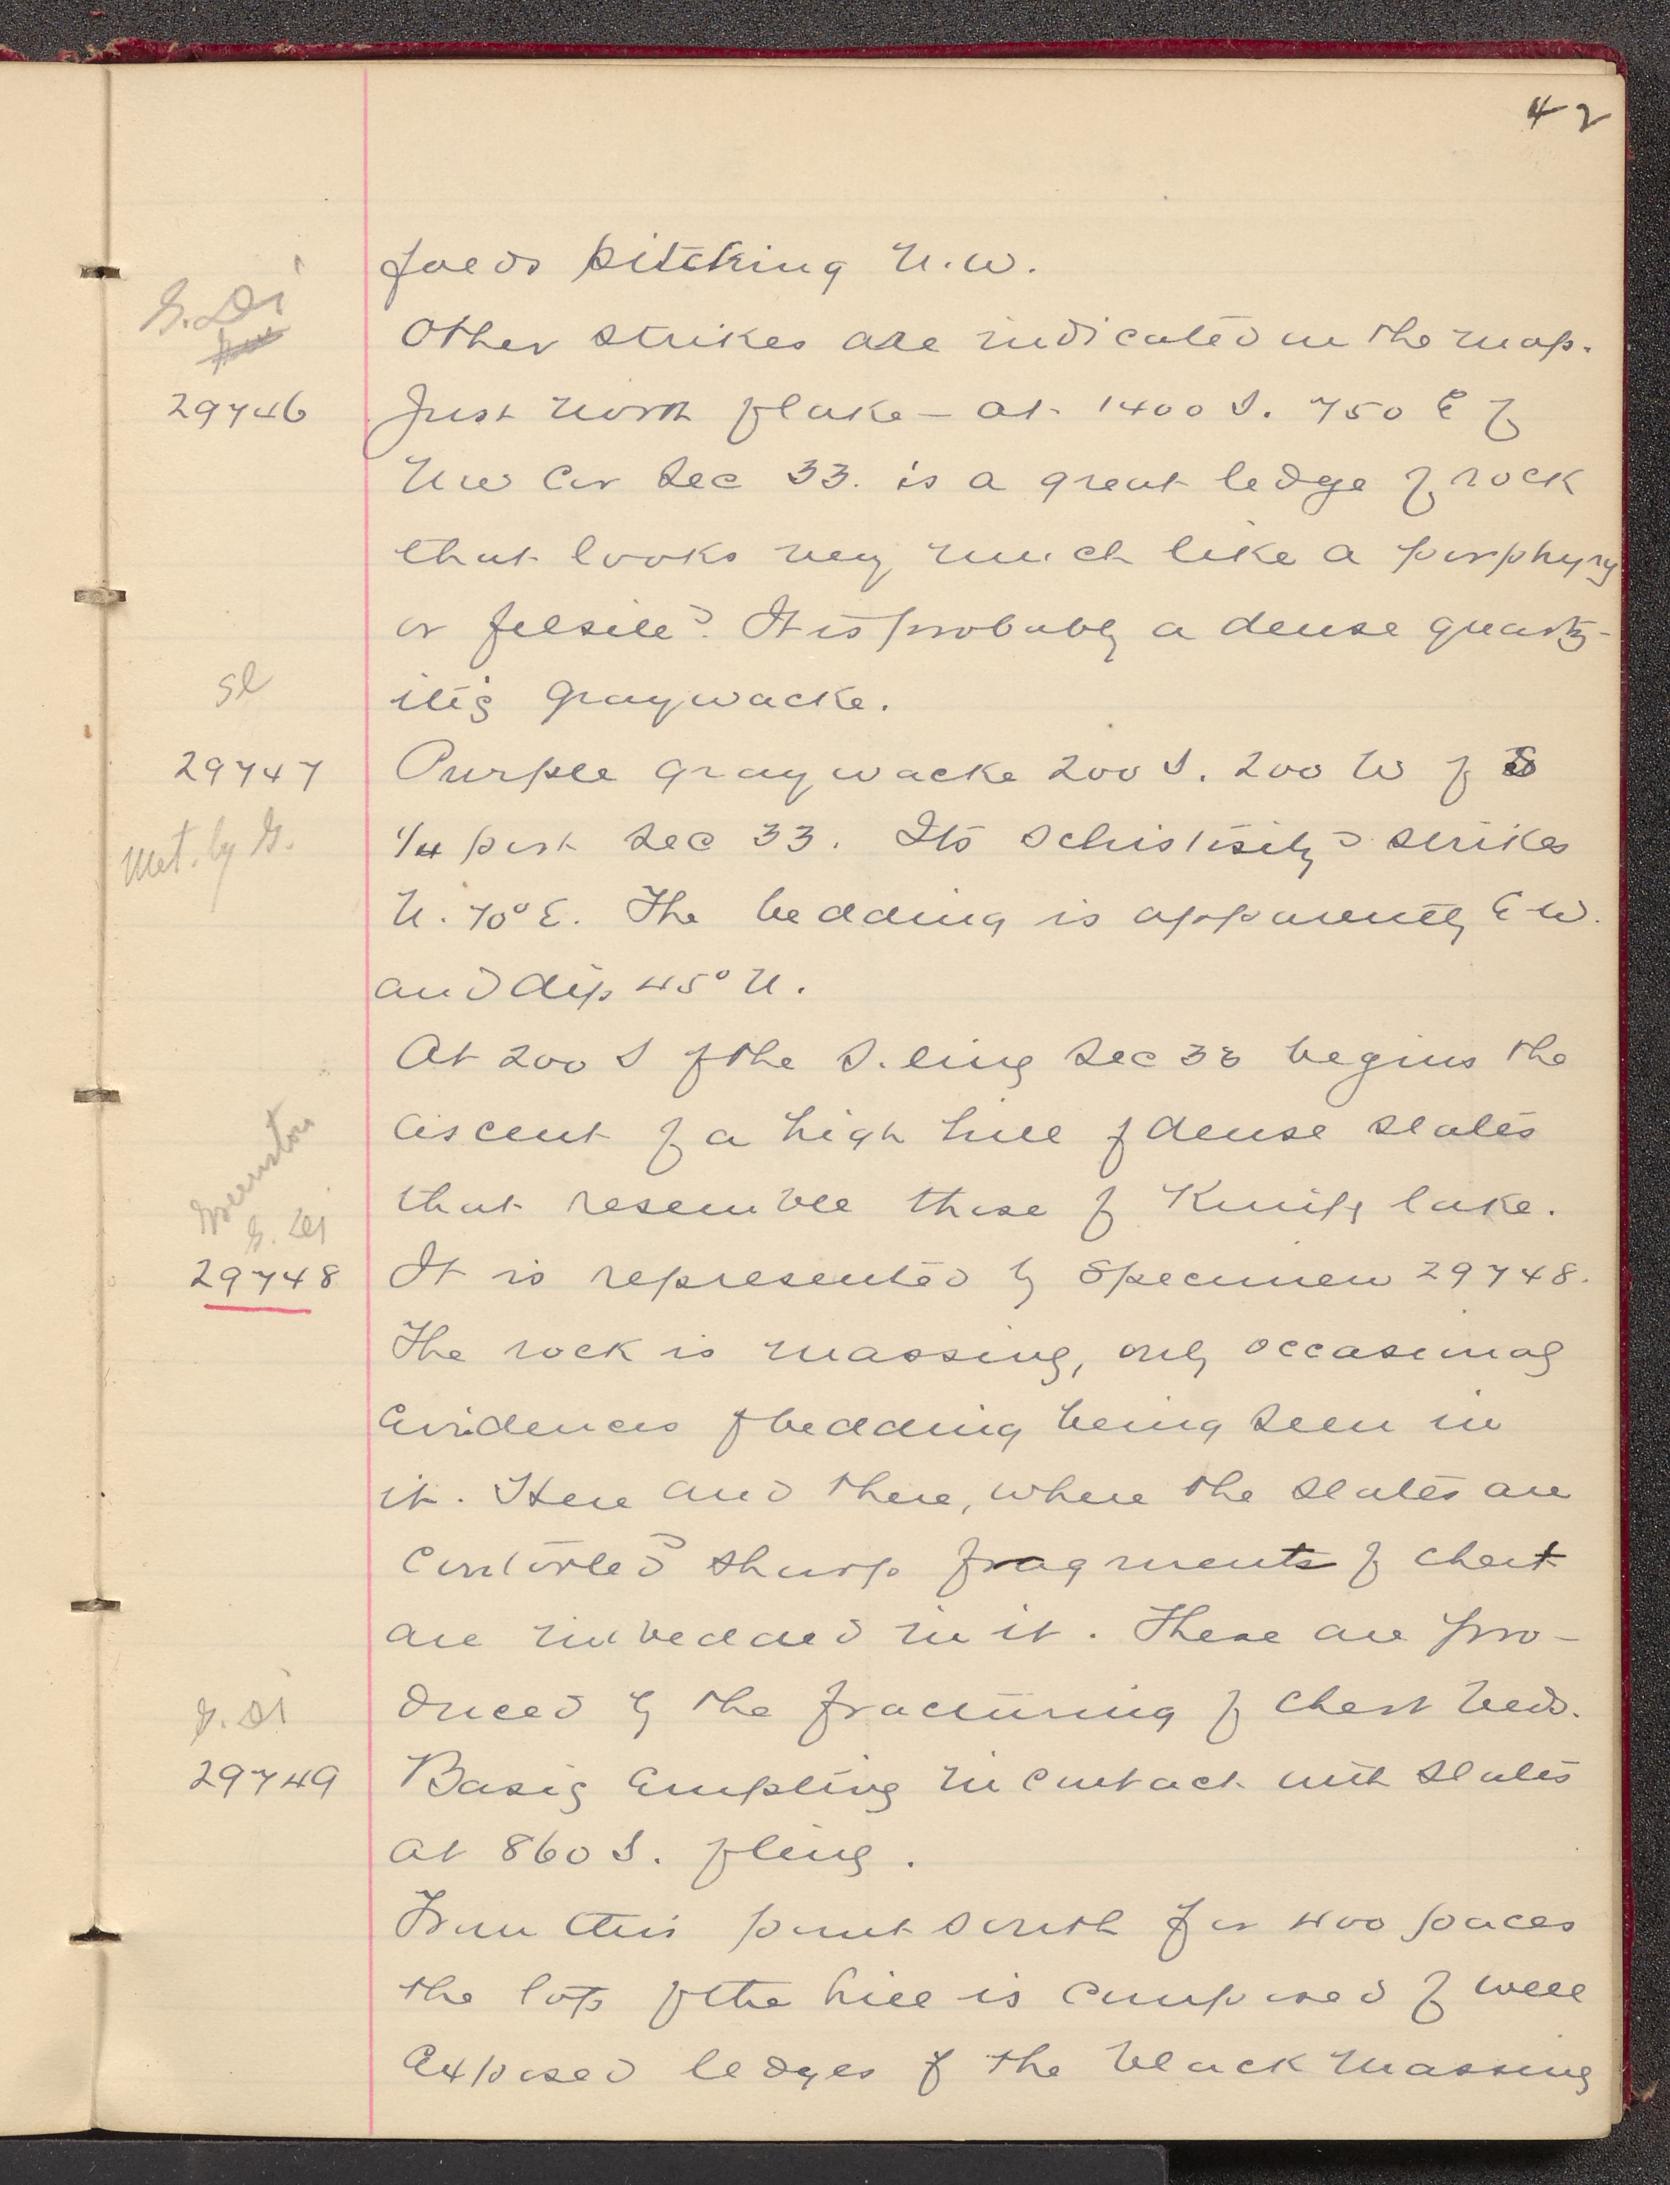 42
folds pitching N.W.
G. Di
Other strikes are indicated on the map.
29746
Just north of lake - at 1400 S. 750 E of
NW Cor Sec 33. is a great ledge of rock
that looks very much like a porphyry
or felsite. It is probably a dense quartz-
Sl
itic graywacke.
29747
Purple graywacke 200 S. 200 W of S
Met. by G.
1/4 post Sec 33. Its schistosity strikes
N. 70° E. The bedding is apparently E W.
and dip 45° N.
At 200 S of the S. line Sec 33 begins the
ascent of a high hill of dense slates
Greenston
that resemble those of Knife lake.
G. Di
29748
It is represented by Specimen 29748.
The rock is massive, only occasional
evidences of bedding being seen in
it. Here and there, where the slates are
contorted sharp fragments of chert
are imbedded in it. These are pro-
G. Di
duced by the fracturing of chert beds.
29749
Basic Eruptive in contact with slates
at 860 S. of line.
From this point south for 400 paces
the top of the hill is composed of well
exposed ledges of the black massive